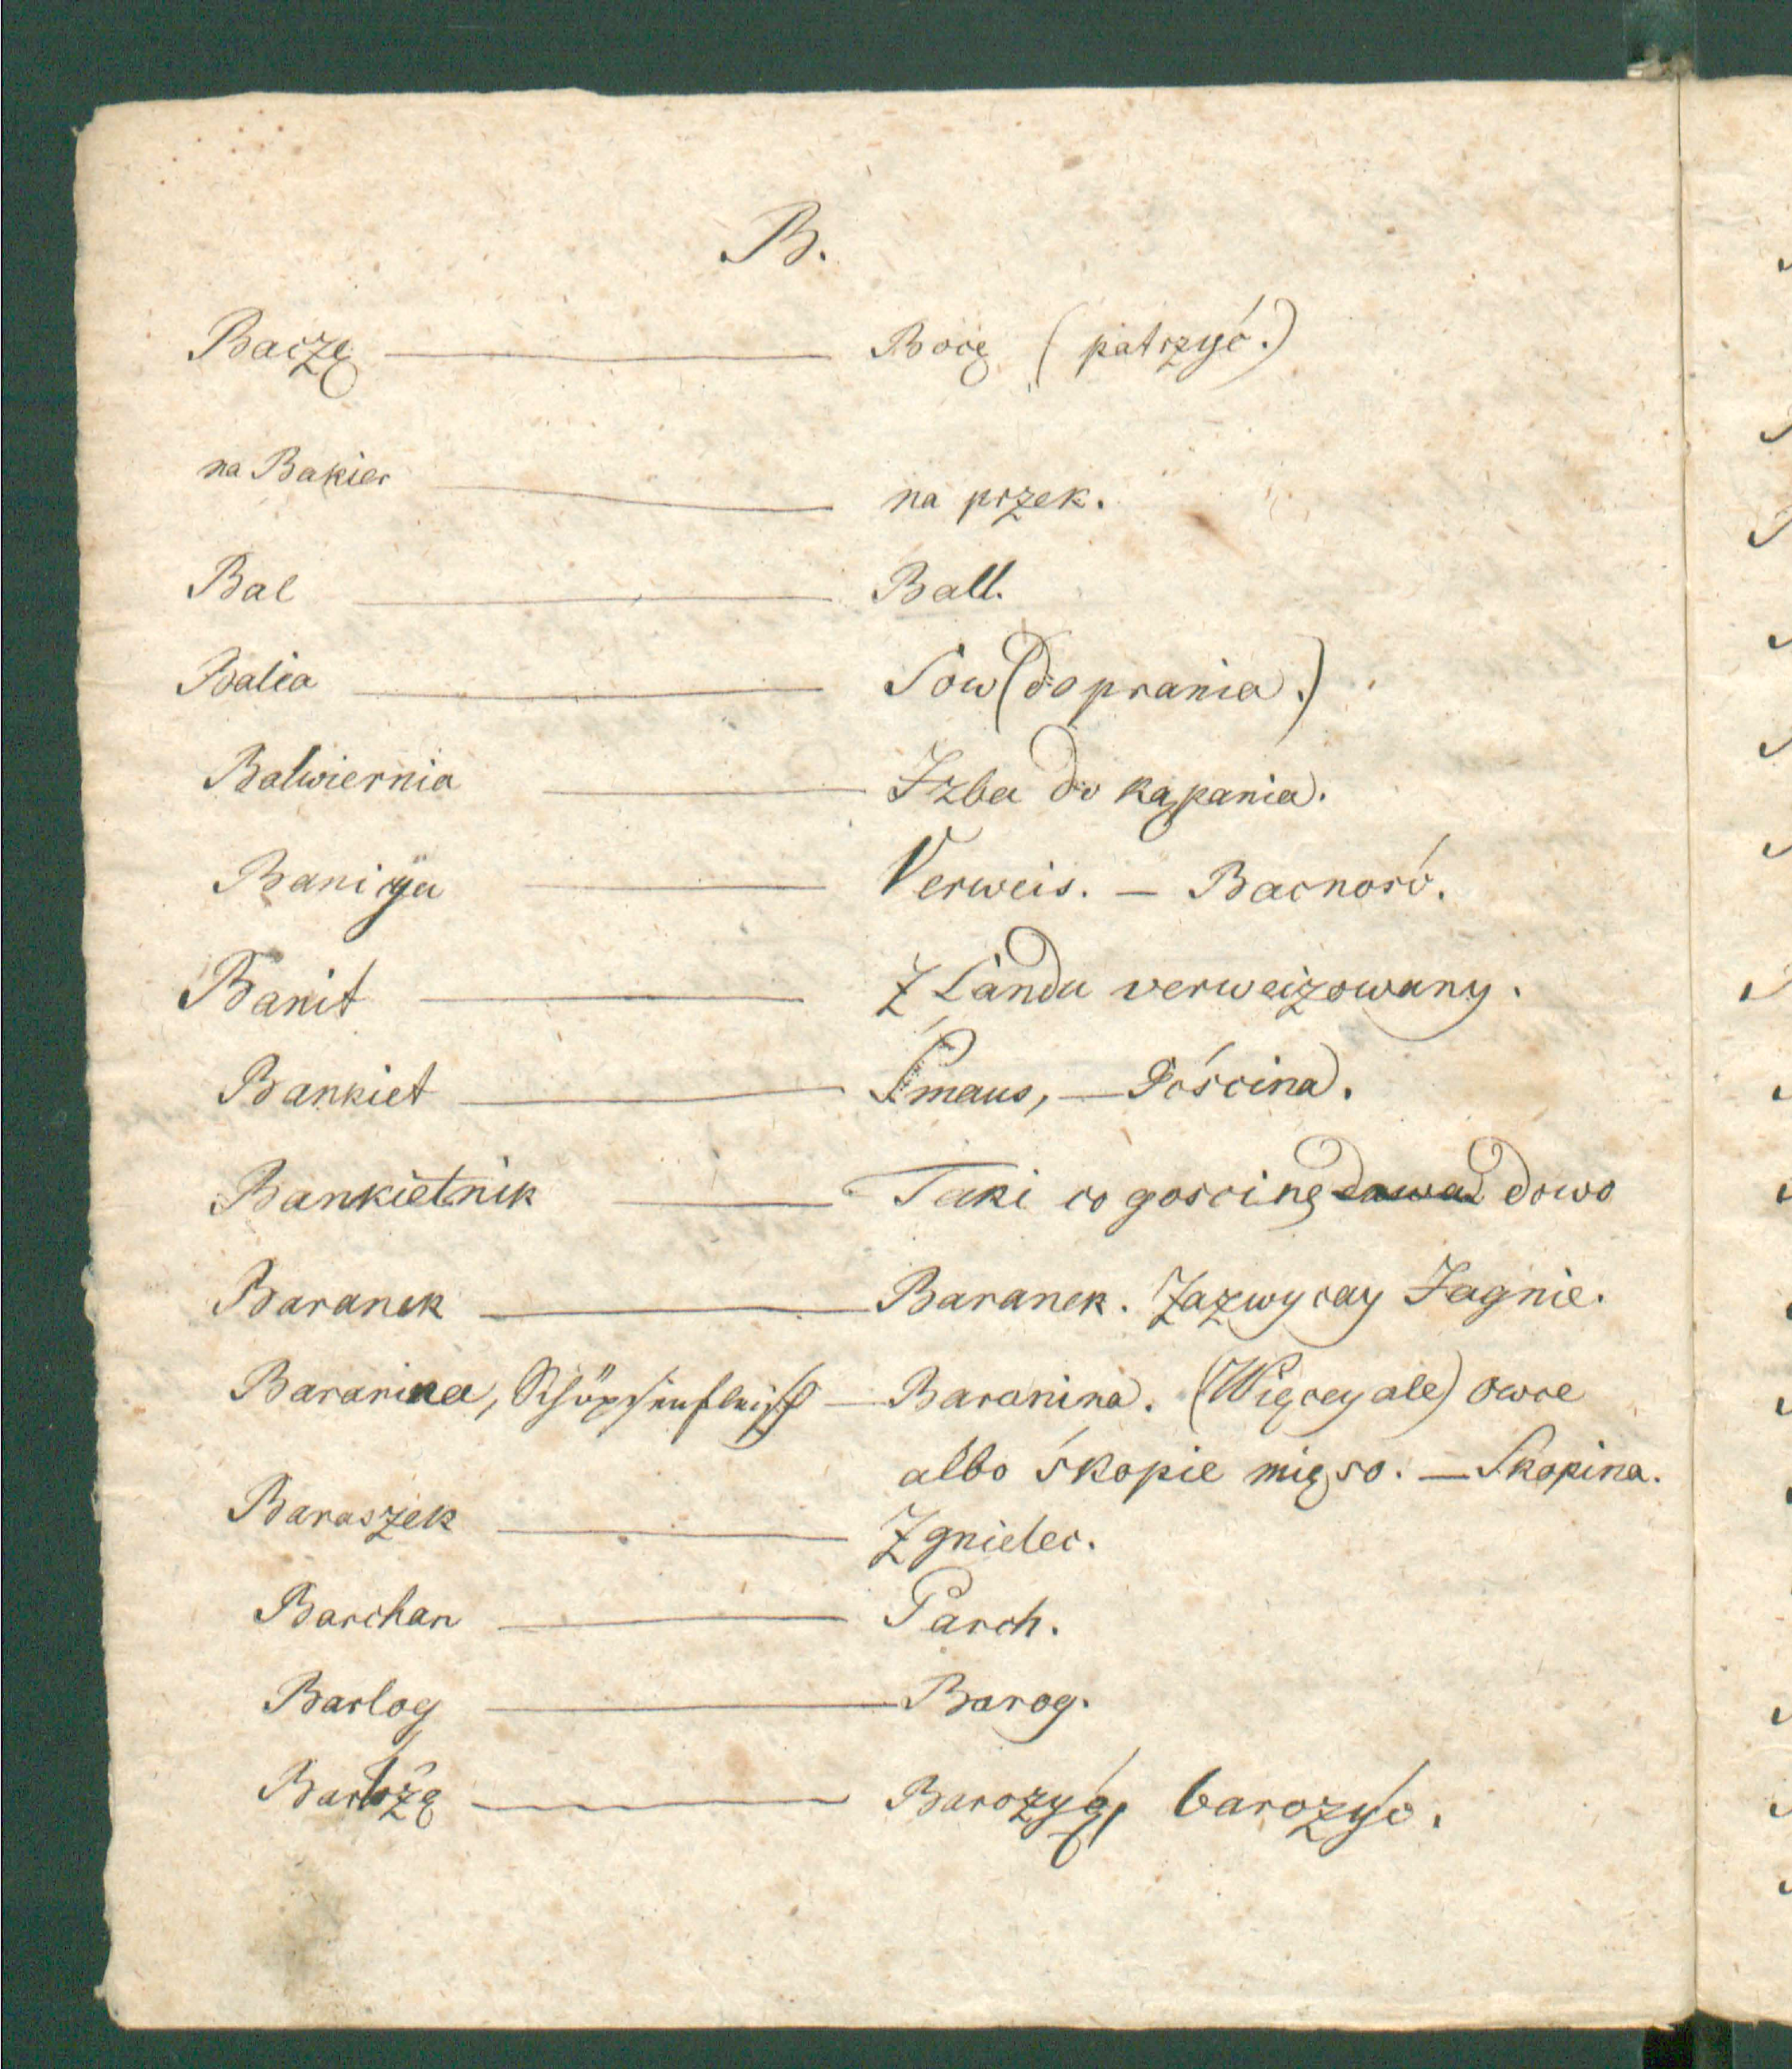 B.
Baczę — Bocę (patrzyć.)
na Bakier — na przek.
Bal — Ball.
Balia — Sow (do prania.)
Balwiernia — Izba do kąpania.
Banicya — Verweis. — Bacność.
Banit — Z Landu verweizowany.
Bankiet — Śmaus, — Gościna.
Bankietnik — Taki co goscinę dawa dowo
Baranek — Baranek. Zazwycay Jagnie.
Baranina, Schöpsenfleisch — Baranina. (Więcey ale) owce
albo śkopie mięso. — Skopina.
Baraszek — Zgnielec.
Barchan — Parch.
Barlog — Barog.
Barłożę — Barozyę, barozyć.